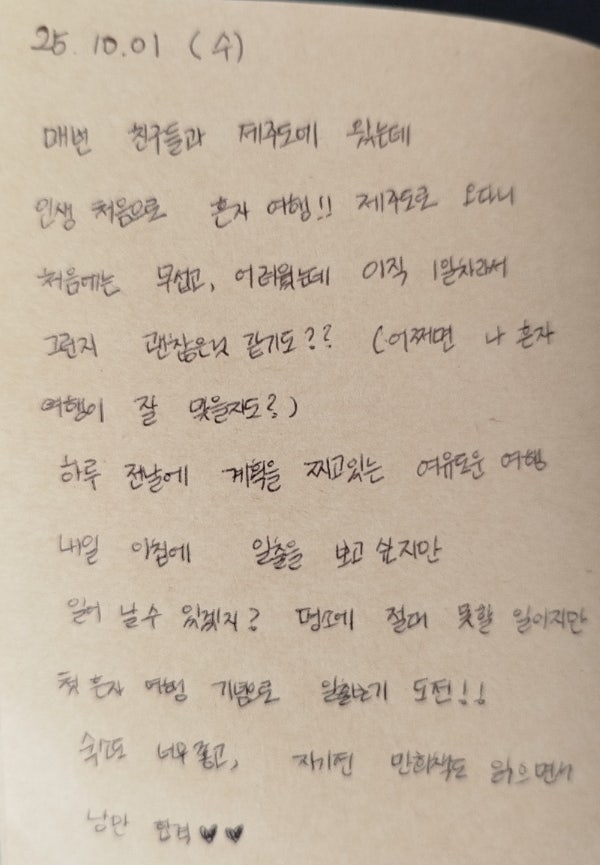 25. 10. 01 (수)
매번 친구들과 제주도에 왔는데
인생 처음으로 혼자 여행!! 제주도로 오다니
처음에는 무섭고, 어려웠는데 아직 1일차라서
그런지 괜찮은닛 같기도?? (어쩌면 나 혼자
여행이 잘 맞을지도?)
하루 전날에 계획을 찌고있는 여유로운 여행
내일 아침에 일출을 보고 싶지만
일어 날 수 있겠지? 평소에 절대 못할 일이지만
첫 혼자 여행 기념으로 일출보기 도전!!
숙소도 너무 좋고, 자기전 만화책도 읽으면서
낭만 합격 ♥♥